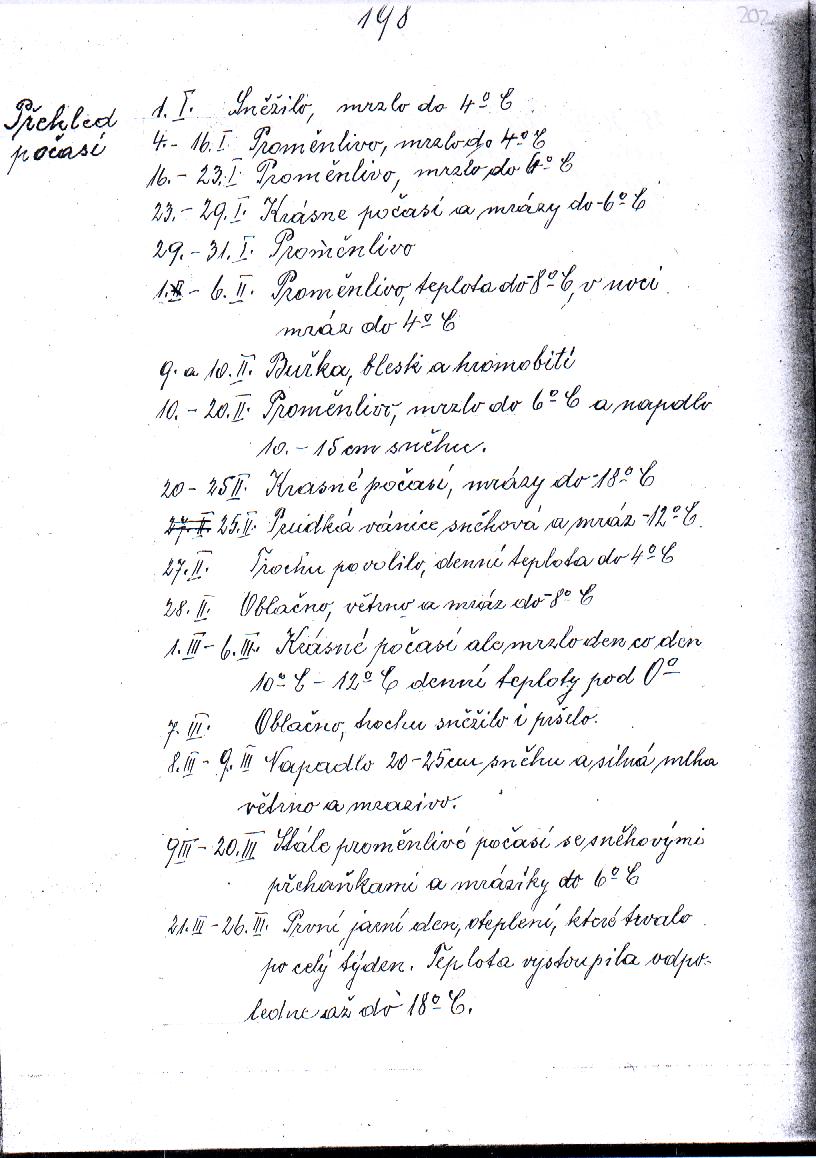 198
202
Přehled
počasí
1. I. Sněžilo, mrzlo do 4º C
4.- 16. I Proměnlivo, mrzlo do 4º C
16. - 23. I Proměnlivo, mrzlo do 6º C
23. - 29. I. Krásne počasí a mrázy do -6º C
29. - 31. I. Proměnlivo
1. II - 6. II. Proměnlivo, teplota do -8º C, v noci
mráz do 4º C
9. a 10. II. Buřka, blesk a hromobití
10. - 20. II. Proměnlivo, mrzlo do 6º C a napdlo
10. - 15 cm sněhu.
20 - 25 II. Krasné počasí, mrázy do -18º C
27. II. 25. II. Prudká vánice sněhová a mráz -12º C.
27. II. Trochu povolilo, denní teplota do 4º C
28. II. Oblačno, větrno a mráz do -8º C
1. III - 6. III. Krásné počasí ale mrzlo den co den
10º C - 12º C denní teploty pod 0º
7. III. Oblačno, trochu sněžilo i pršelo.
8. III - 9. III Napadlo 20-25 cm sněhu a silná mlha
větrno a mrazivo.
9 III - 20. III Stále proměnlivé počasí se sněhovými
přehaňkami a mrázíky do 6º C
21. III - 26. III. První jarní den, oteplení, které trvalo
po celý týden. Teplota vystoupila odpo-
ledne až do 18º C.